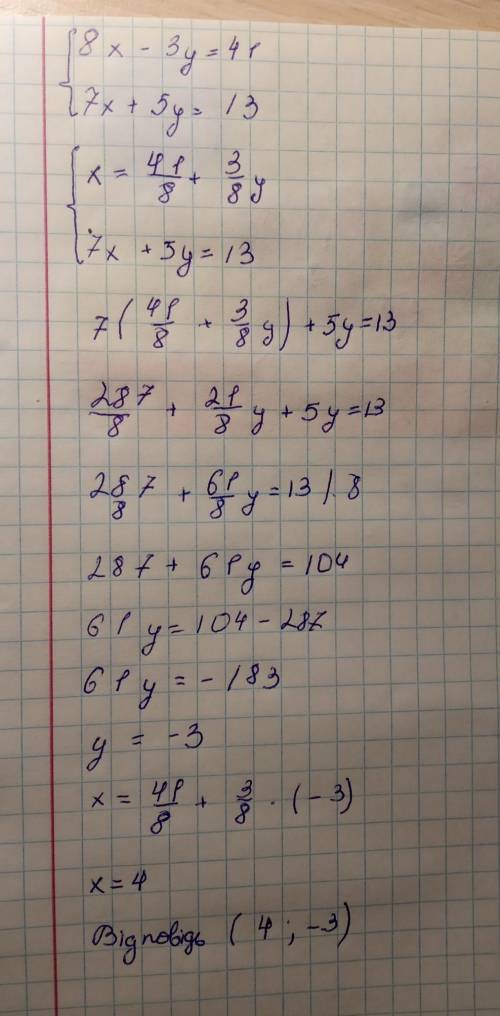 8x - 3y = 41
7x + 5y = 13
x = 41/8 + 3/8 y
7x + 5y = 13
7 ( 41/8 + 3/8 y ) + 5y = 13
287/8 + 21/8 y + 5y = 13
287/8 + 61/8 y = 13 / · 8
287 + 61y = 104
61y = 104 - 287
61y = - 183
y = -3
x = 41/8 + 3/8 · (-3)
x = 4
Відповідь ( 4 ; -3)